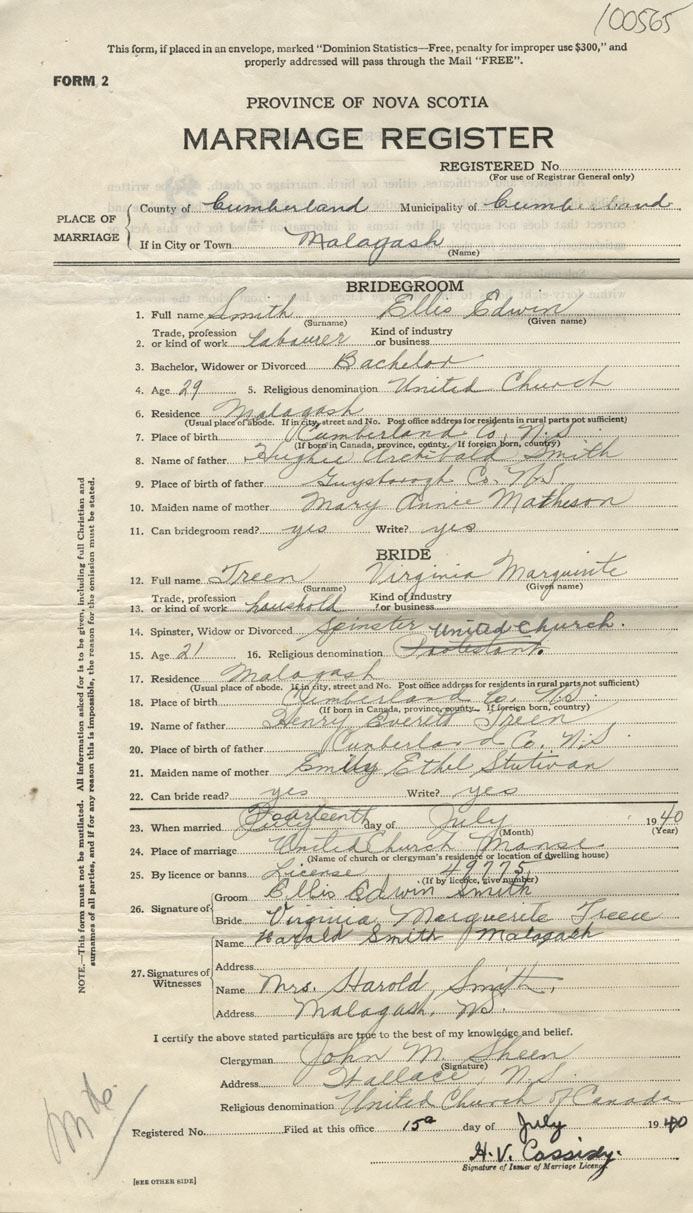 100565
This form, if placed in an envelope, marked "Dominion Statistics—Free, penalty for improper use $300," and
properly addressed will pass through the Mail "FREE".
FORM 2
PROVINCE OF NOVA SCOTIA
MARRIAGE REGISTER
REGISTERED No.
(For use of Registrar General only)
PLACE OF MARRIAGE
County of Cumberland Municipality of Cumberland
If in City or Town Malagash
(Name)
BRIDEGROOM
1. Full name Smith Ellis Edwin
(Surname) (Given name)
2. Trade, profession or kind of work labourer Kind of industry or business
3. Bachelor, Widower or Divorced Bachelor
4. Age 29 5. Religious denomination United Church
6. Residence Malagash
(Usual place of abode. If in city, street and No. Post office address for residents in rural parts not sufficient)
7. Place of birth Cumberland Co, N.S
(If born in Canada, province, county. If foreign born, country)
8. Name of father Hughie Archibald Smith
9. Place of birth of father Guysborogh Co. N.S
10. Maiden name of mother Mary Annie Matheson
11. Can bridegroom read? yes Write? yes
BRIDE
12. Full name Treen Virginia Marguirite
(Surname) (Given name)
13. Trade, profession or kind of work household Kind of industry or business
14. Spinster, Widow or Divorced Spinster
United Church.
15. Age 21 16. Religious denomination Protestant.
17. Residence Malagash
(Usual place of abode. If in city, street and No. Post office address for residents in rural parts not sufficient)
18. Place of birth Cumberland Co. N.S.
(If born in Canada, province, county. If foreign born, country)
19. Name of father Henry Everett Treen
20. Place of birth of father Cumberland Co, N.S.
21. Maiden name of mother Emily Ethel
22. Can bride read? yes Write? yes
23. When married Fourteenth day of July 1940
(Month) (Year)
24. Place of marriage United Church Manse
(Name of church or clergyman's residence or location of dwelling house)
25. By licence or banns License 49775
(If by licence, give number)
26. Signature of
Groom Ellis Edwin Smith
Bride Virginia Marguerite Treen
27. Signatures of Witnesses
Name Harald Smith Malagash
Address
Name Mrs. Harold Smith,
Address Malagash, N.S.
I certify the above stated particulars are true to the best of my knowledge and belief.
Clergyman John M. Sheen
(Signature)
Address Wallace, N.S.
Religious denomination United Church of Canada
Registered No. Filed at this office 15th day of July 1940
H.V. Cassidy.
Signature of Issuer of Marriage Licence
[SEE OTHER SIDE]
NOTE.—This form must not be mutilated. All information asked for is to be given, including full Christian and
surnames of all parties, and if for any reason this is impossible, the reason for the omission must be stated.